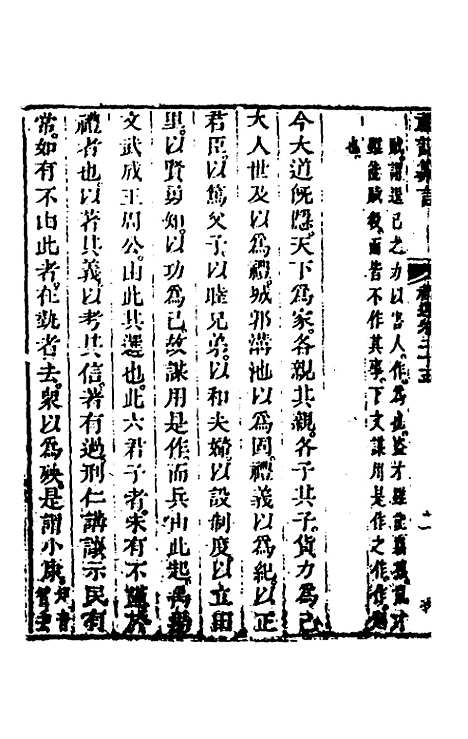 禮記纂言 禮運卷二十五
賊謂逞己之力以害人作為也盜才雖能
賊後而皆不作其事下文謀用是作之作作
也
今大道旣隱天下為家各親其親各子其子貨力為己
大人世及以為禮城郭溝池以為固禮義以為紀以正
君臣以篤父子以睦兄弟以和夫婦以設制度以立田
里以賢勇知以功為己故謀用是作而兵由此起禹湯
文武成王周公由此其選也此六君子者未有不謹於
禮者也以著其義以考其信著有過刑仁講讓示民有
常如有不由此者在埶者去衆以為殃是謂小康